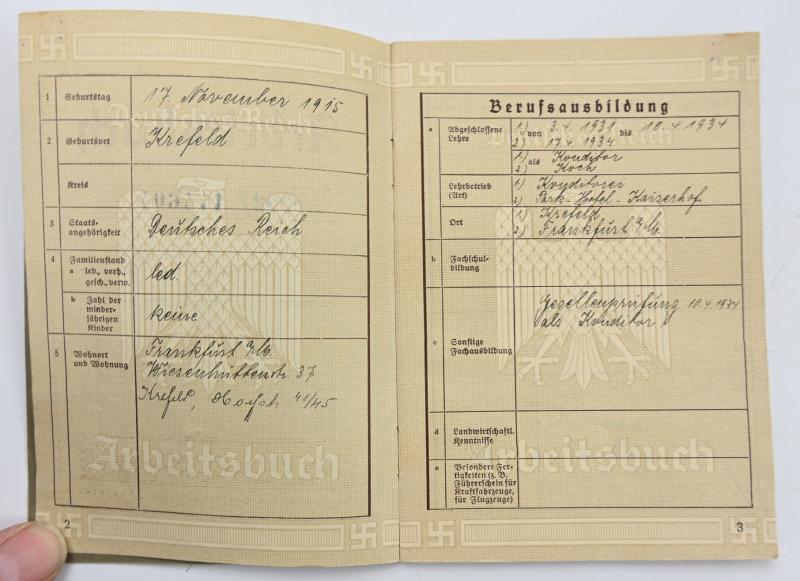 1 Geburtstag 17. November 1915
2 Geburtsort Krefeld
Kreis
3 Staats-
angehörigkeit Deutsches Reich
4 Familienstand
a led., verh.,
gesch., verw. led.
b Zahl der
minder-
jährigen
Kinder keine
5 Wohnort
und Wohnung Frankfurt a/M.
Wiesenhüttenstr. 37
Krefeld, 41/45
Deutsches Reich
Arbeitsbuch
2
Berufsausbildung
a Abgeschlossene
Lehre
1) von 3.4. 1931 bis 10.4.1934
2) 17.4.1934
1) als Konditor
2) Koch
Lehrbetrieb
(Art)
1) Konditorei
2) Park-Hotel-Kaiserhof
Ort
1) Krefeld
2) Frankfurt a/M.
b Fachschul-
bildung
c Sonstige
Fachausbildung
Gesellenprüfung 10.4.1934
als Konditor
d Landwirtschaftl.
Kenntnisse
e Besondere Fer-
tigkeiten (z. B.
Führerschein für
Kraftfahrzeuge,
für Flugzeuge)
Arbeitsbuch
3